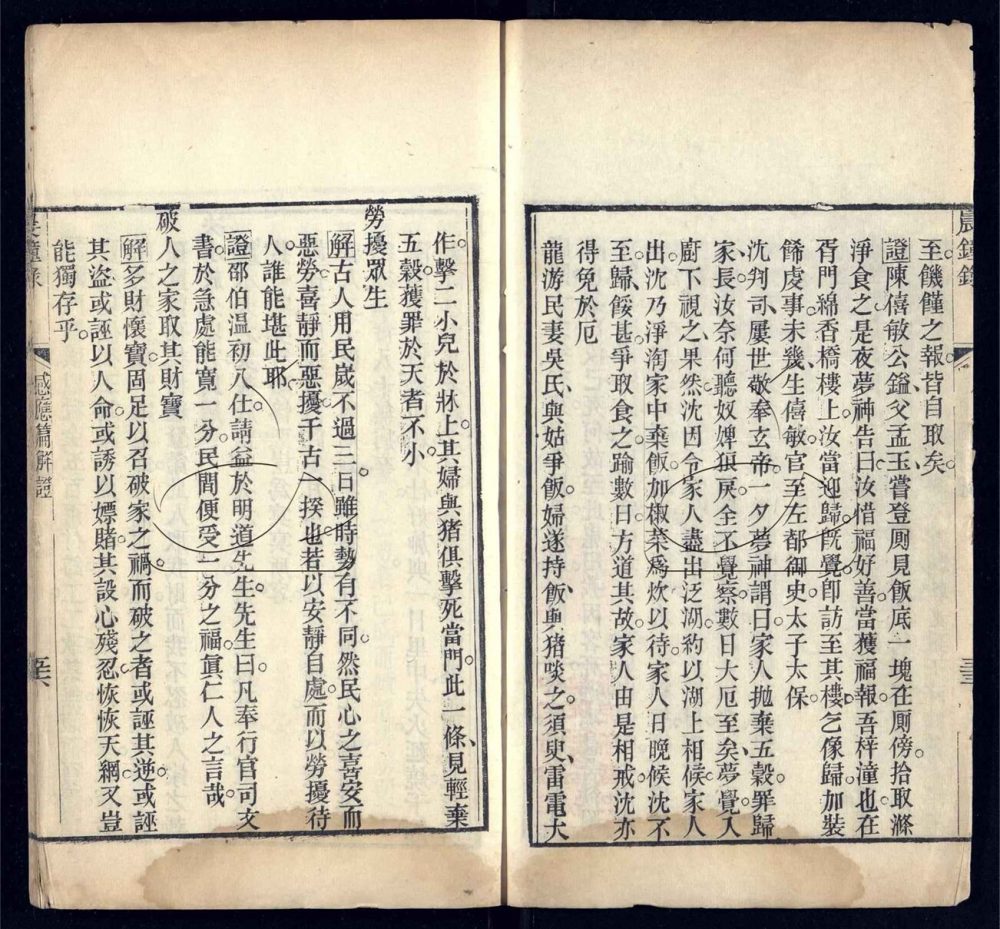 晨鐘錄
至饑饉之報。皆自取矣。
證陳僖敏公鎰父孟玉、嘗登厠見飯底一塊在厠傍。拾取滌
淨食之。是夜夢神告曰、汝惜福好善。當獲福報。吾梓潼也、在
胥門綿香橋樓上。汝當迎歸。旣覺卽訪至其樓。乞像歸加裝
餙虔事。未幾生僖敏。官至左都御史太子太保
沈判司、屢世敬奉玄帝。一夕夢神謂曰、家人拋棄五穀、罪歸
家長。汝奈何聽奴婢狼戾。全不覺察。數日大厄至矣。夢覺、入
廚下視之、果然。沈因令家人盡出泛湖。約以湖上相候。家人
出、沈乃淨淘家中棄飯。加椒菜爲炊以待。家人日晚候沈不
至。歸、餒甚。爭取食之。踰數日、方道其故。家人由是相戒。沈亦
得免於厄
龍游民妻吳氏、與姑爭飯。婦遂持飯與猪啖之。須臾、雷電大
三五
作。擊二小兒於牀上。其婦與猪俱擊死當門。此一條、見輕棄
五穀。獲罪於天者不小
勞擾眾生
解古人用民。歲不過三日。雖時勢有不同。然民心之喜安而
惡勞。喜靜而惡擾。千古一揆也。若以安靜自處。而以勞擾待
人。誰能堪此耶
證邵伯溫初入仕。請益於明道先生。先生曰、凡奉行官司文
書。於急處能寬一分。民間便受一分之福。眞仁人之言哉
破人之家取其財寶
解多財懷寶。固足以召破家之禍。而破之者、或誣其逆。或誣
其盜。或誣以人命。或誘以嫖賭。其設心殘忍。恢恢天網。又豈
能獨存乎。
感應篇解證